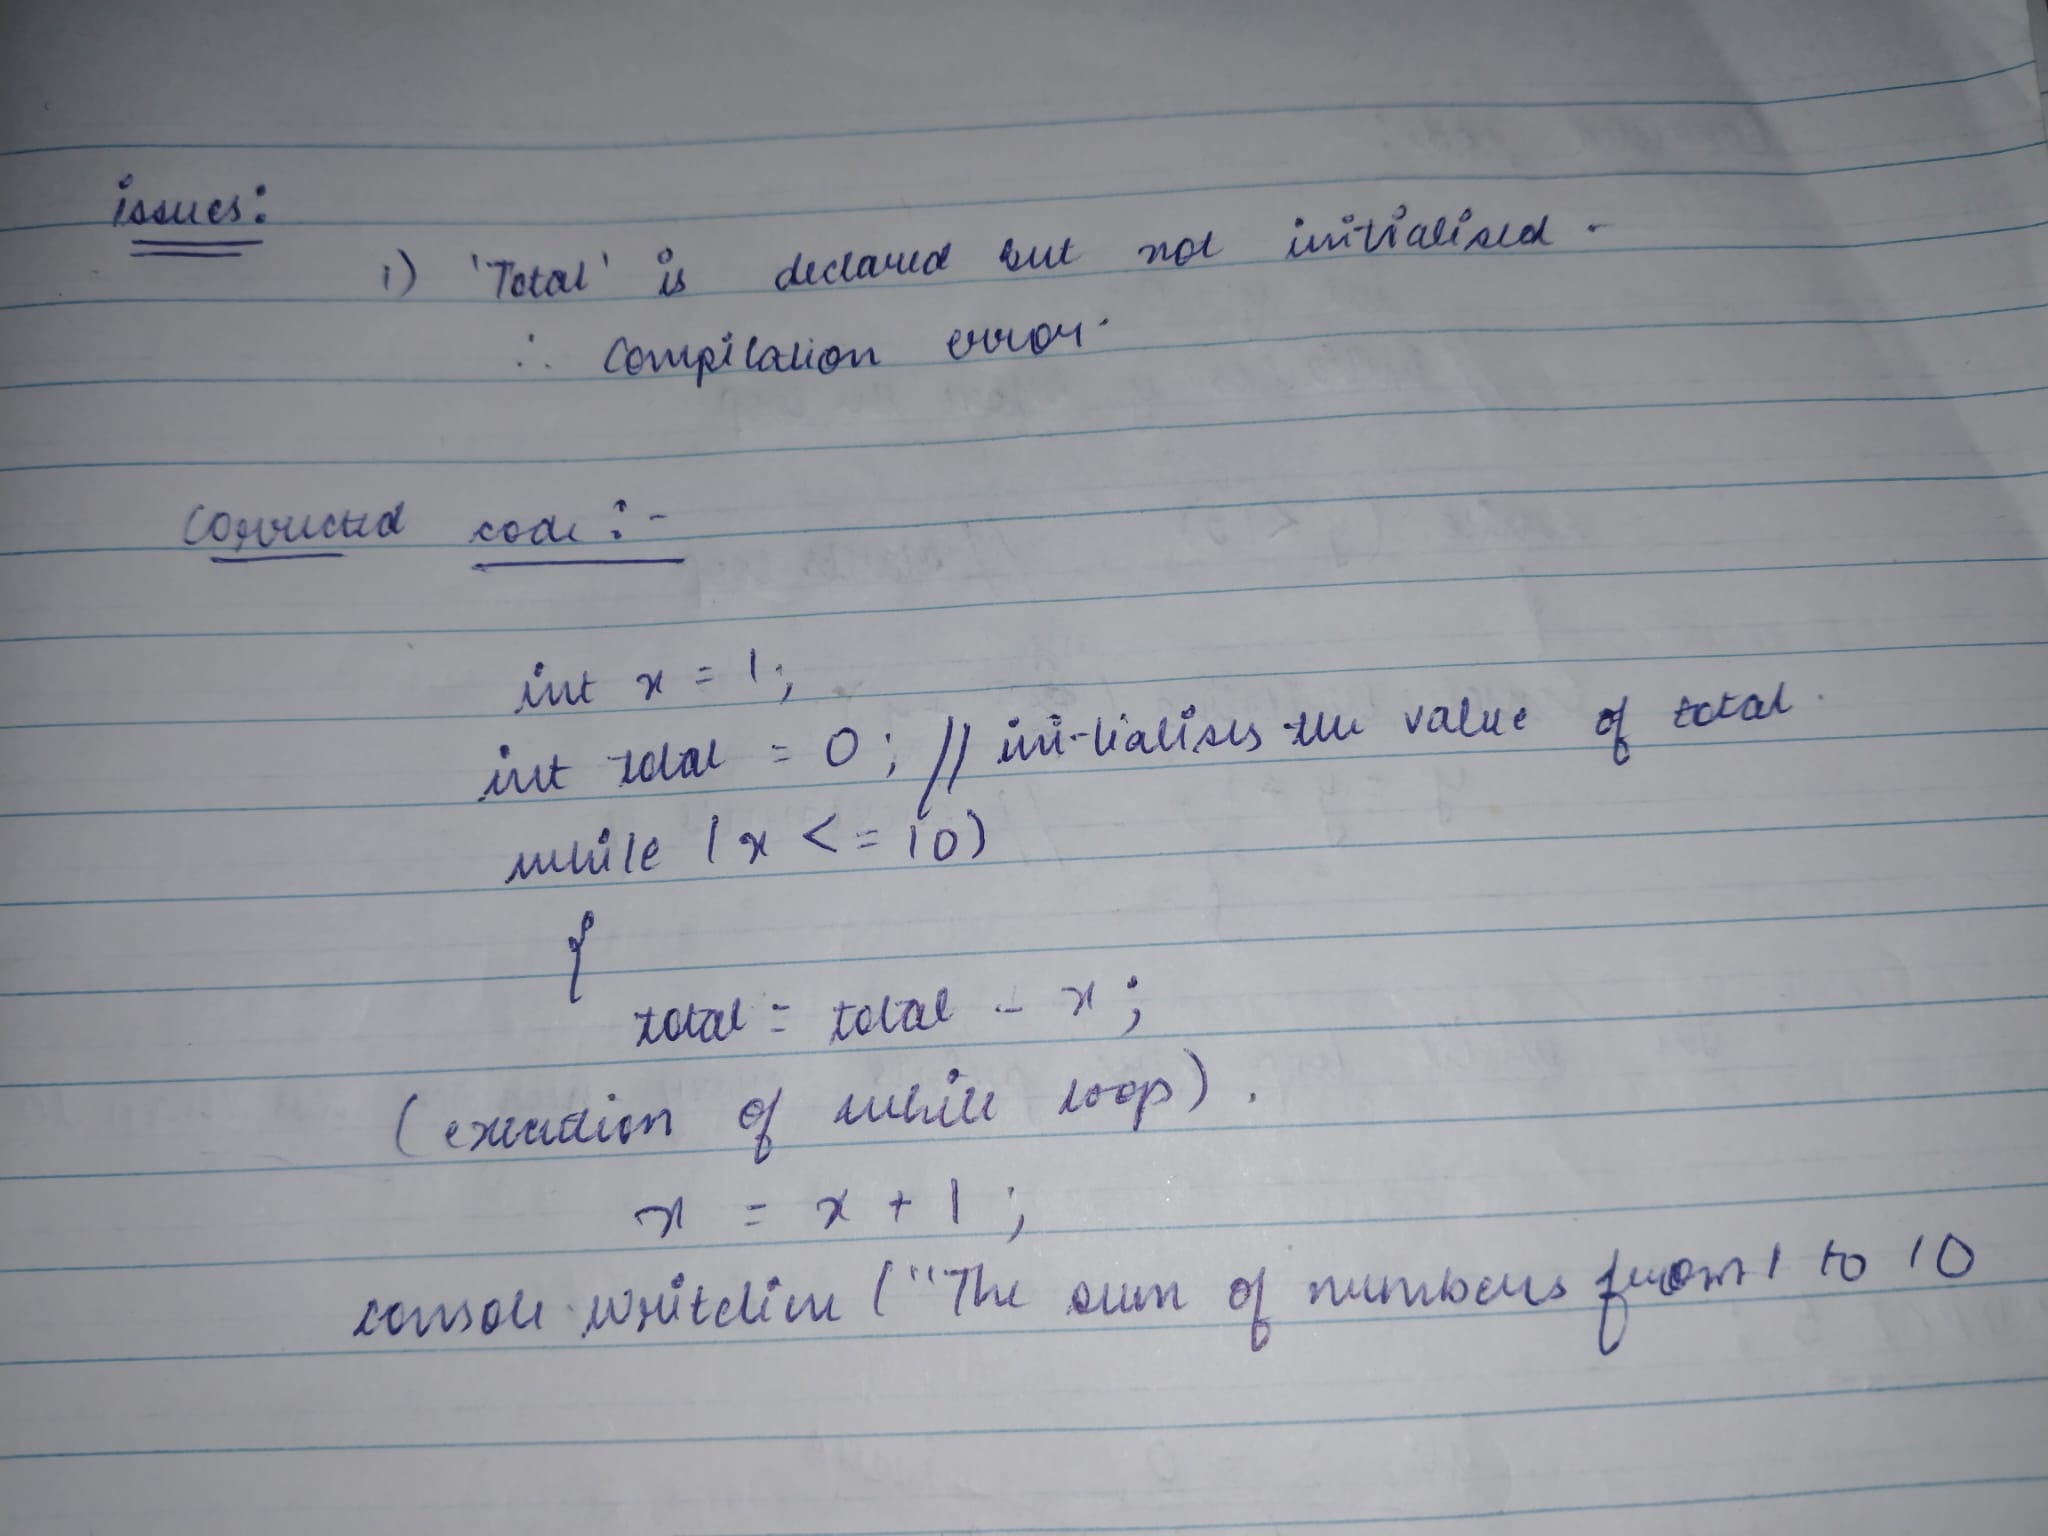 issues:
1) 'Total' is declared but not initialised.
∴ Compilation error.
Corrected code :-
int x = 1;
int total = 0; // initialises the value of total.
while (x <= 10)
{
total = total - x;
(execution of while loop).
x = x + 1;
console.writeline ("The sum of numbers from 1 to 10